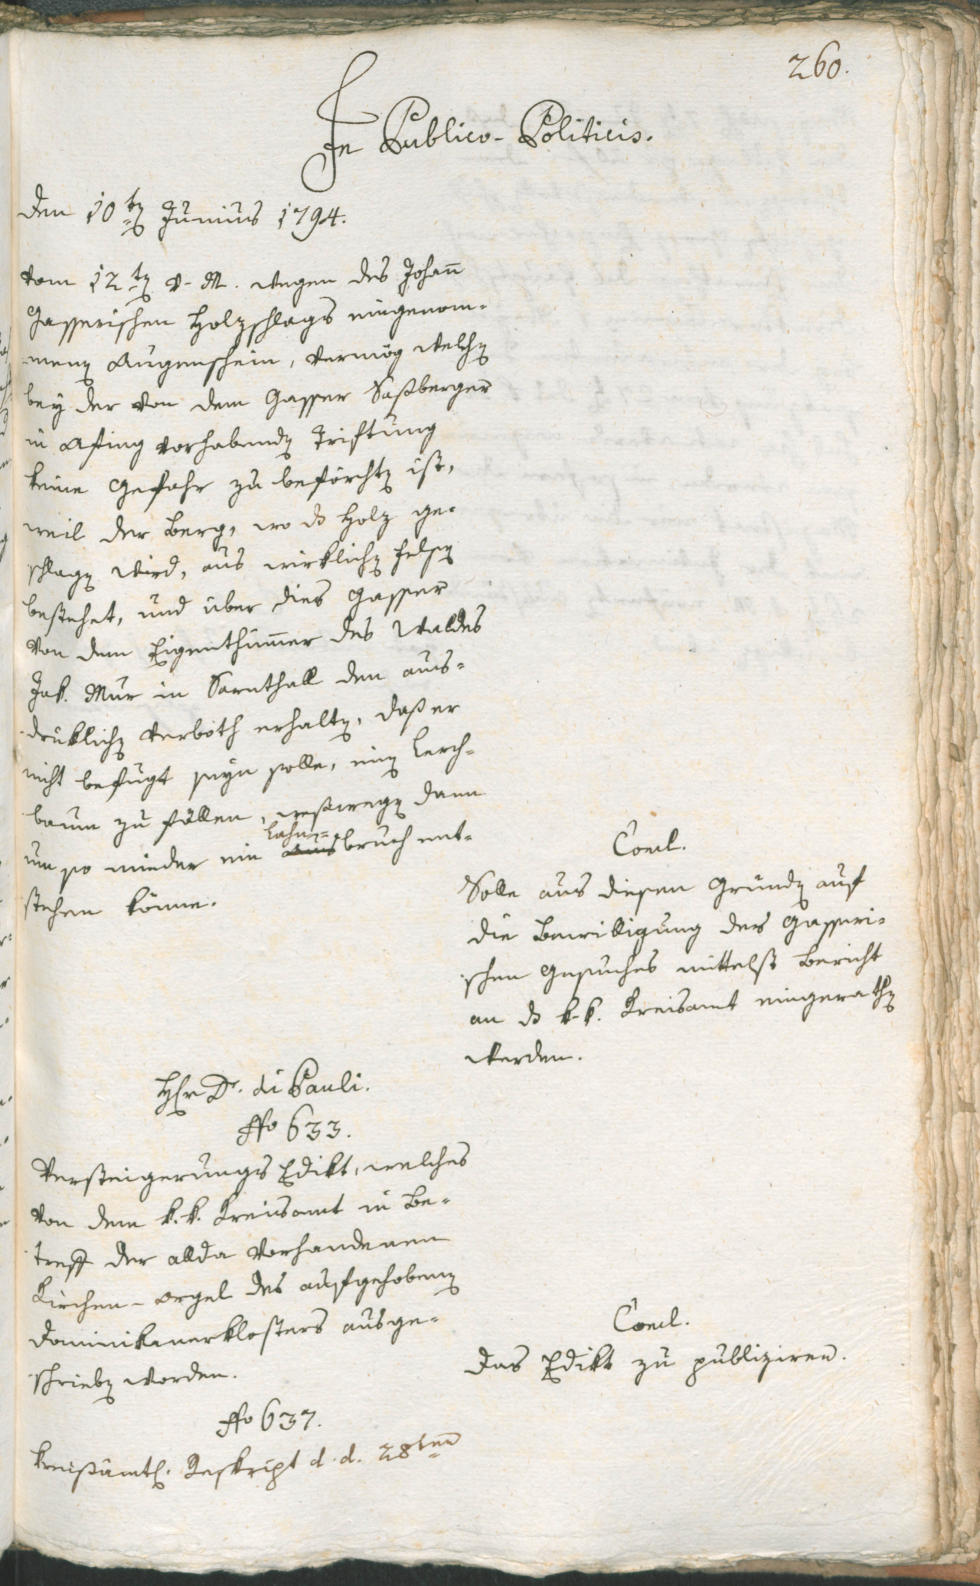 260.
In Publico-Politicis.
den 10ten Junius 1794.
vom 12ten v. M. wegen des Johann
Gasserischen Holzschlags eingenom-
menen Augenschein, vermög welchen
bey der von dem Gasser Saßberger
in Afing vorhabenden Triftung
keine Gefahr zu beförchten ist,
weil der Berg, wo das Holz ge-
schlagen wird, aus wirklichen Felsen
bestehet, und über dies Gasser
von dem Eigenthümmer des Waldes
Jak. Mur in Sarnthall den aus-
drüklichen Verboth erhalten, daß er
nicht befugt seyn solle, einen Lerch-
baum zu fällen, weßwegen dann
um so minder ein Lahnen-bruch ent-
stehen könne.
Concl.
Solle aus diesen Gründen auf
die Bewilligung des Gasseri-
schen Gesuches mittelst Bericht
an das k.k. Kreisamt eingerathen
werden.
Herr Dr. di Pauli.
No 633.
Versteigerungs Edikt, welches
von dem k.k. Kreisamt in Be-
treff der allda vorhandenen
Kirchen-orgel des aufgehobenen
Dominikanerklosters ausge-
schrieben worden.
Concl.
Das Edikt zu publiziren.
No 637.
Kreisämtl. Reskript d. d. 28ten